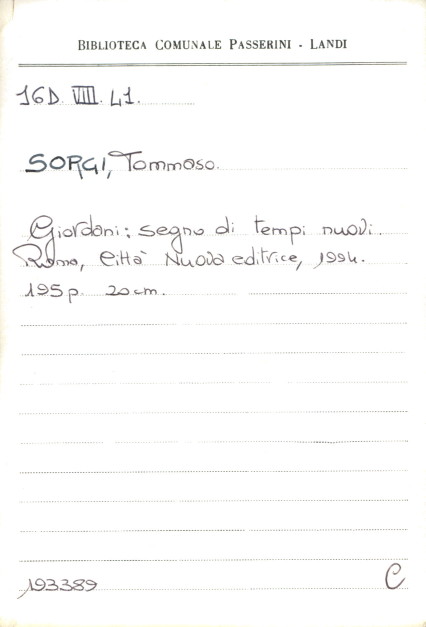 BIBLIOTECA COMUNALE PASSERINI - LANDI
16D. VIII. 41.
SORGI, Tommaso.
Giordani: segno di tempi nuovi.
Roma, Città Nuova editrice, 1994.
195 p. 20 cm.
193389
C